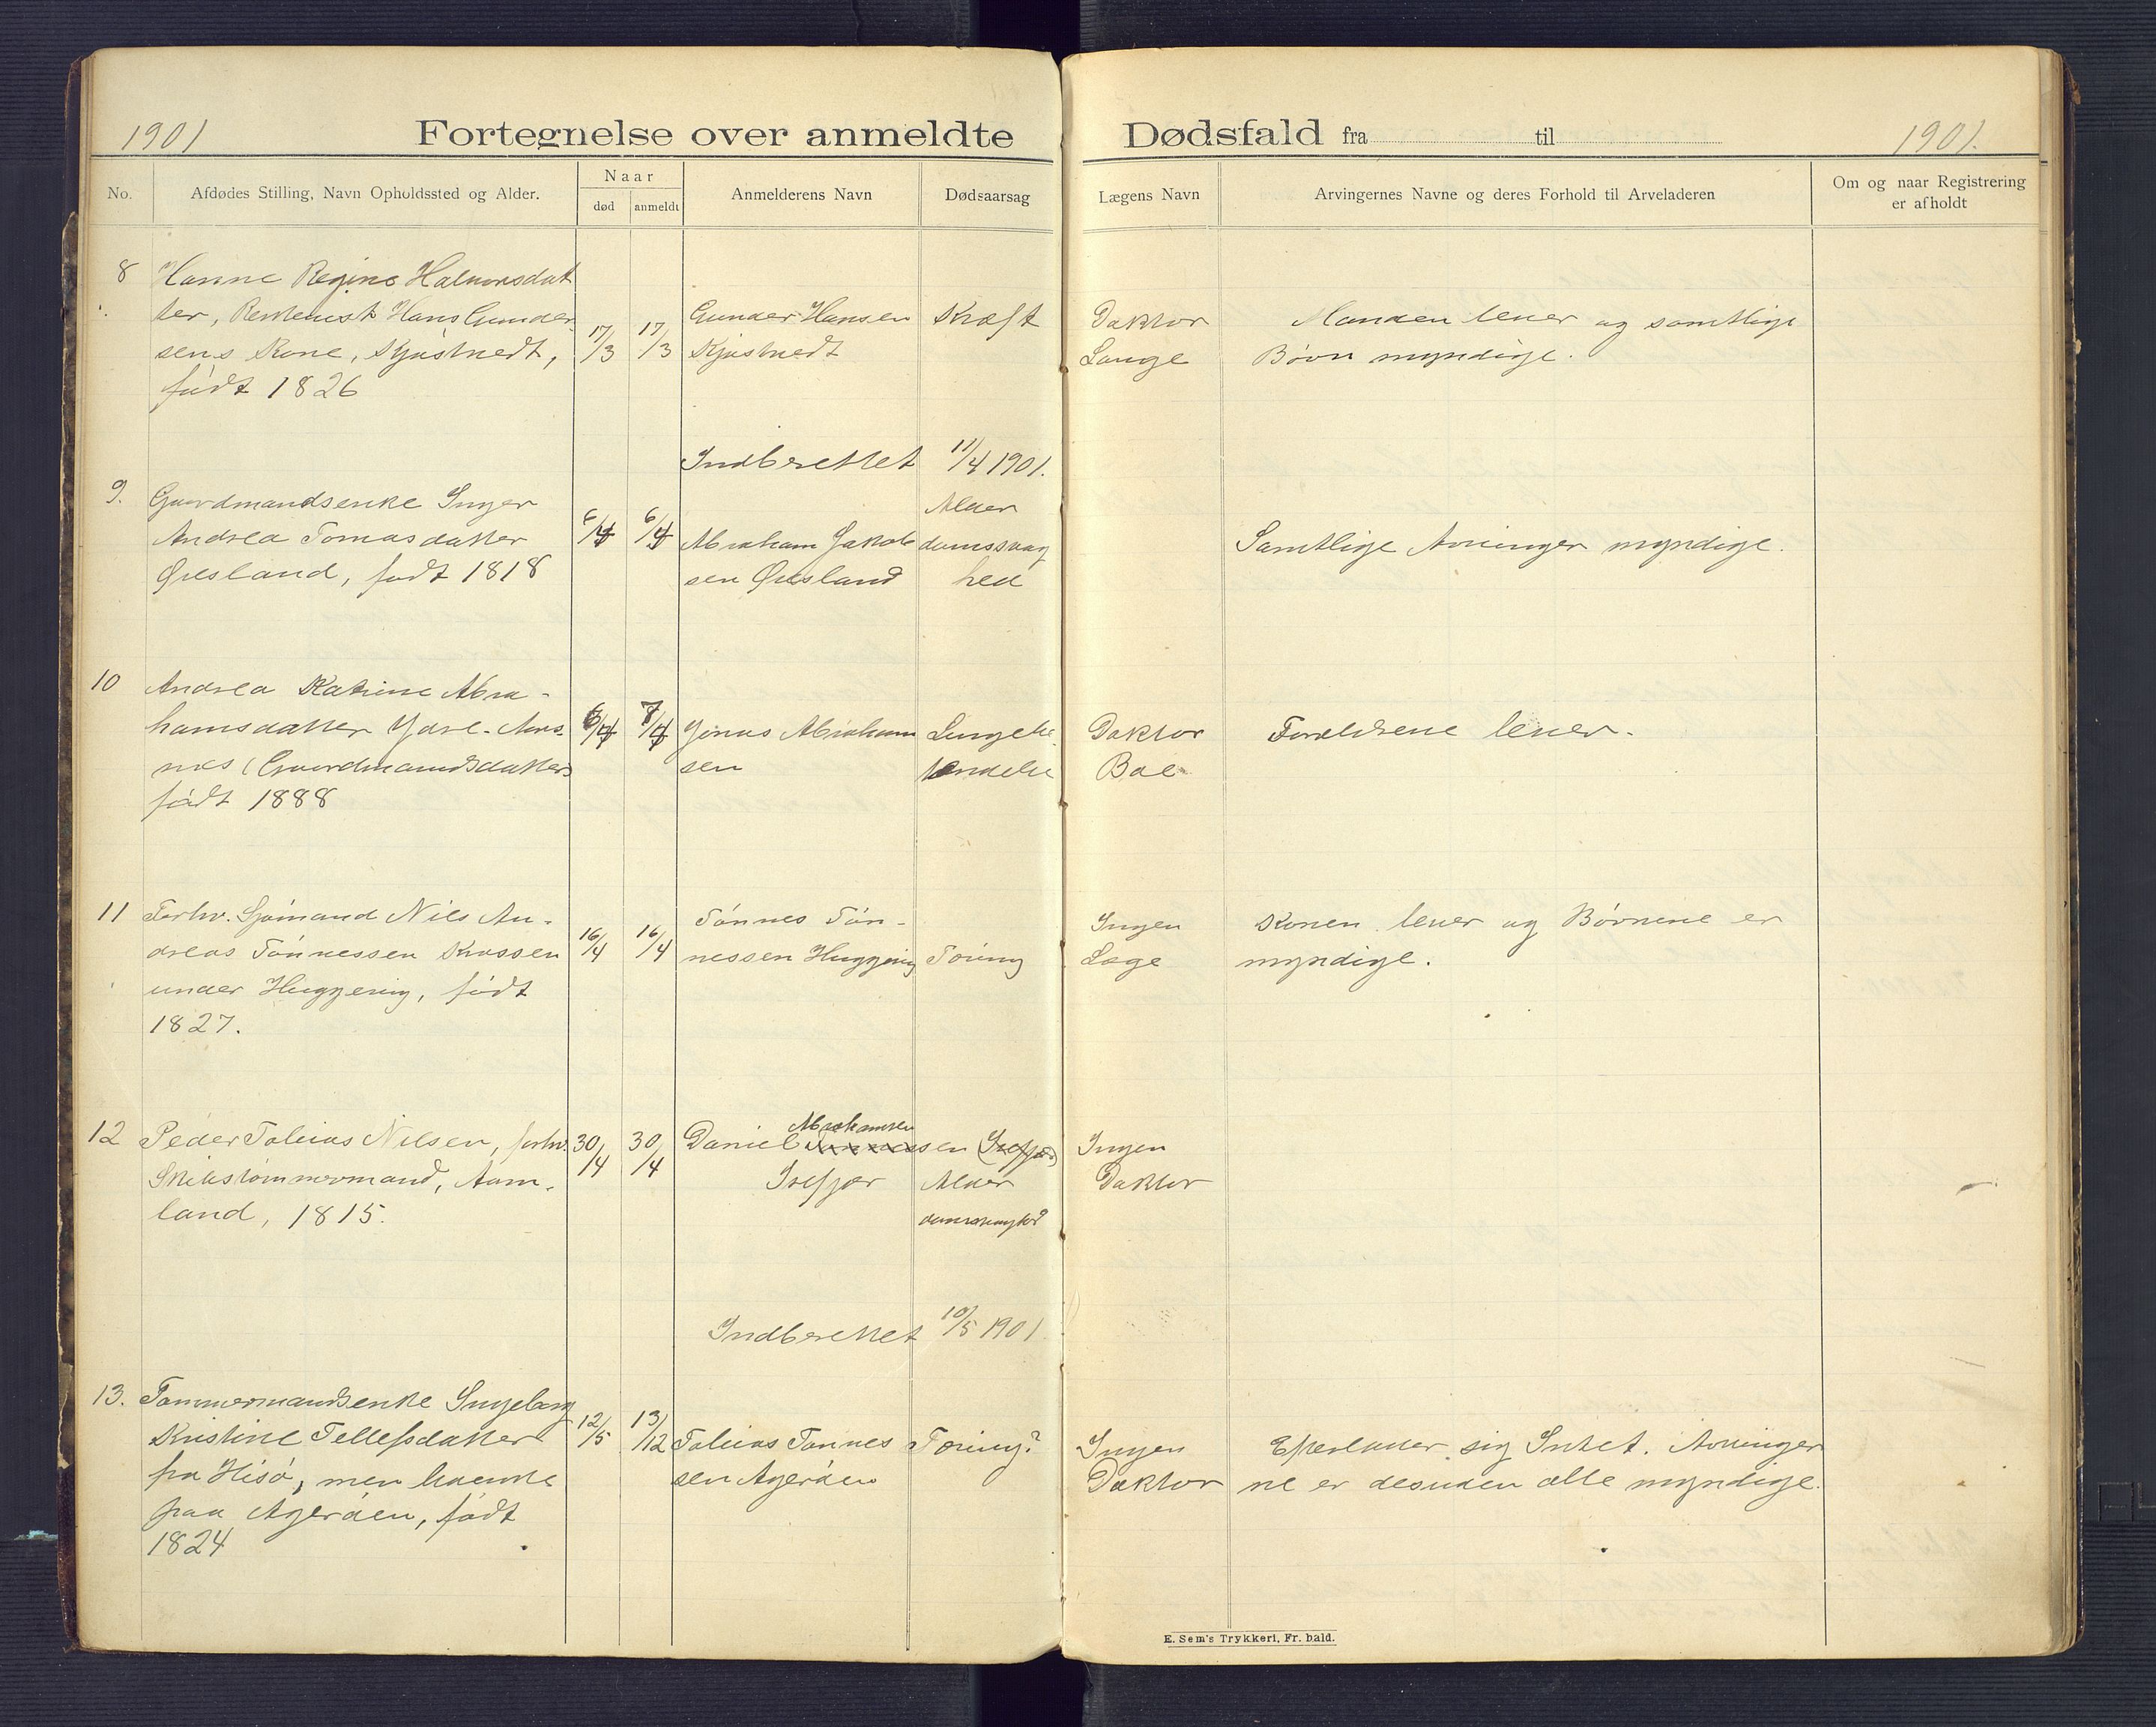 1901
Fortegnelse over anmeldte Dødsfald fra til
1901.
No.
Afdødes Stilling, Navn Opholdssted og Alder.
Naar
død
anmeldt
Anmelderens Navn
Dødsaarsag
Lægens Navn
Arvingernes Navne og deres Forhold til Arveladeren
Om og naar Registrering
er afholdt
8
Hanne Regine Halvorsdat
ter, Hans Gunder
sens Kone,
født 1826
17/3
17/3
Gunder Hansen
Kræft
Doktor
Lange
Manden lever og samtlige
Børn myndige.
Indberettet 11/4 1901.
9.
Gaardmandsenke Inger
Andrea Tomasdatter
Øresland, født 1818
6/4
6/4
Abraham Jakob
sen Øresland
Alder
domssvag
hed
Samtlige Arvinger myndige.
10
Andrea Katrine Abra-
hamsdatter Ydre-
Gaardmandsdatter
født 1888
6/4
7/4
Jonas Abraham
sen
Lungebe
tændelse
Doktor
Boe
Foreldrene lever.
11
Forhv. Sjømand Nils An-
dreas Tønnessen
under Huggening, født
1827.
16/4
16/4
Tønnes Tøn-
nessen Huggening
Tæring
Ingen
Læge
Konen lever og Børnene er
myndige.
12
Peder Tobias Nilsen, forhv.
Skibstømmermand, Aam-
land, 1815.
30/4
30/4
Abrahamsen
Daniel sen
Isefjær
Alder
domssvaghed
Ingen
Doktor
Indberettet 10/5 1901
13.
Tømmermandsenke Ingeborg
Kristine Tellefsdatter
fra Hisø, men
paa Agerøen, født
1824
12/5
13/12
Tobias Tønnes
sen Agerøen
Tæring?
Ingen
Doktor
Efterlader sig Intet. Arvinger
ne er desuden alle myndige.
E. Sem's Trykkeri, Fr.hald.